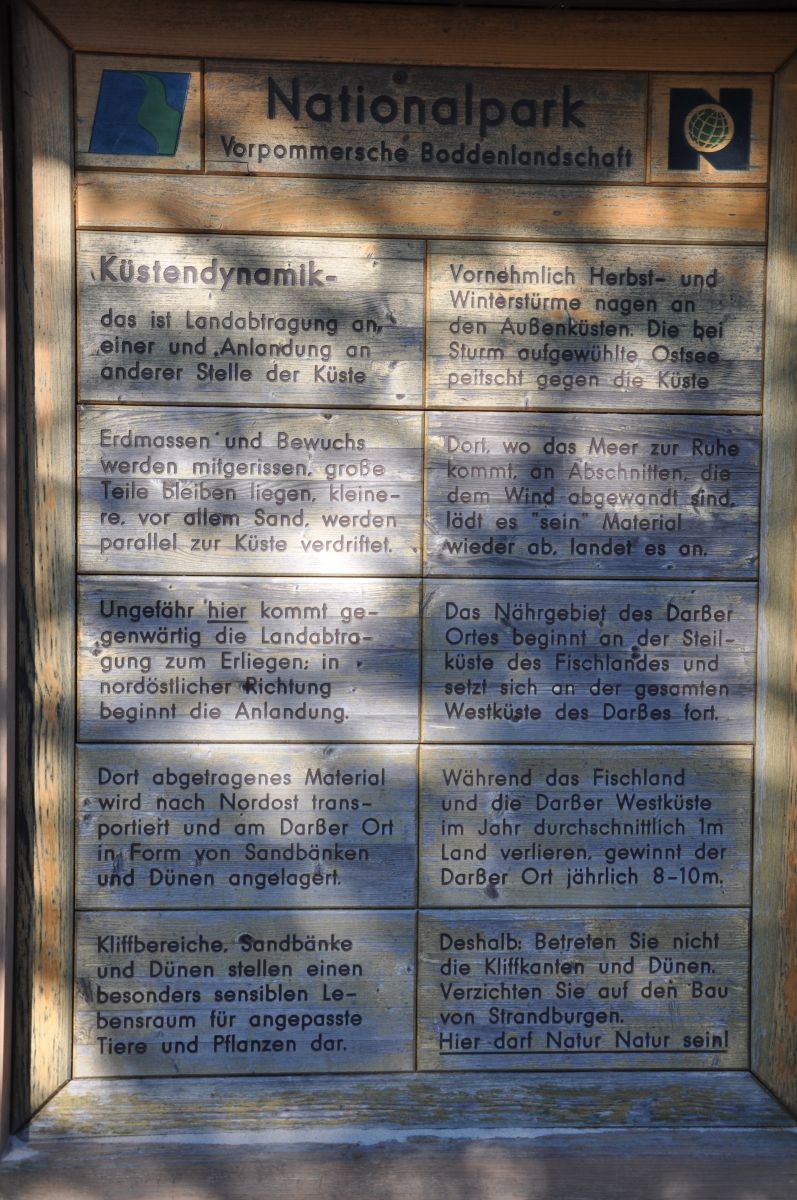 Nationalpark
Vorpommersche Boddenlandschaft
N
Küstendynamik-
das ist Landabtragung an
einer und Anlandung an
anderer Stelle der Küste
Vornehmlich Herbst- und
Winterstürme nagen an
den Außenküsten. Die bei
Sturm aufgewühlte Ostsee
peitscht gegen die Küste
Erdmassen und Bewuchs
werden mitgerissen, große
Teile bleiben liegen, kleine-
re, vor allem Sand, werden
parallel zur Küste verdriftet.
Dort, wo das Meer zur Ruhe
kommt, an Abschnitten, die
dem Wind abgewandt sind,
lädt es "sein" Material
wieder ab, landet es an.
Ungefähr hier kommt ge-
genwärtig die Landabtra-
gung zum Erliegen; in
nordöstlicher Richtung
beginnt die Anlandung.
Das Nährgebiet des Darßer
Ortes beginnt an der Steil-
küste des Fischlandes und
setzt sich an der gesamten
Westküste des Darßes fort.
Dort abgetragenes Material
wird nach Nordost trans-
portiert und am Darßer Ort
in Form von Sandbänken
und Dünen angelagert.
Während das Fischland
und die Darßer Westküste
im Jahr durchschnittlich 1m
Land verlieren, gewinnt der
Darßer Ort jährlich 8-10m.
Kliffbereiche, Sandbänke
und Dünen stellen einen
besonders sensiblen Le-
bensraum für angepasste
Tiere und Pflanzen dar.
Deshalb: Betreten Sie nicht
die Kliffkanten und Dünen.
Verzichten Sie auf den Bau
von Strandburgen.
Hier darf Natur Natur sein!